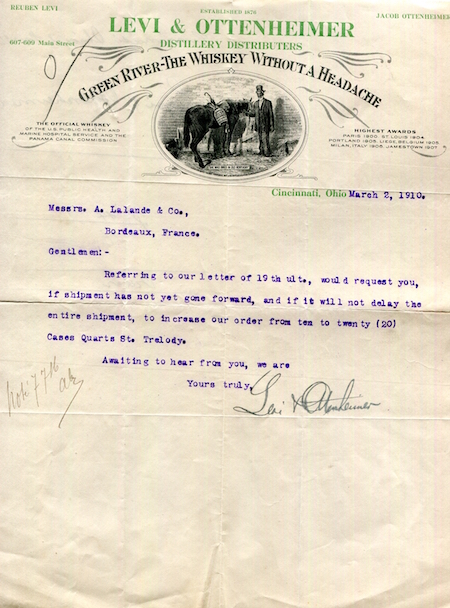 REUBEN LEVI
ESTABLISHED 1876
JACOB OTTENHEIMER
LEVI & OTTENHEIMER
607-609 Main Street
DISTILLERY DISTRIBUTERS
GREEN RIVER-THE WHISKEY WITHOUT A HEADACHE
THE OFFICIAL WHISKEY
OF THE U.S. PUBLIC HEALTH AND
MARINE HOSPITAL SERVICE AND THE
PANAMA CANAL COMMISSION
HIGHEST AWARDS
PARIS 1900, ST. LOUIS 1904,
PORTLAND 1905, LIEGE, BELGIUM 1905,
MILAN, ITALY 1906, JAMESTOWN 1907.
Cincinnati, Ohio March 2, 1910.
Messrs. A. Lalande & Co.,
Bordeaux, France.
Gentlemen:-
Referring to our letter of 19th ult., would request you,
if shipment has not yet gone forward, and if it will not delay the
entire shipment, to increase our order from ten to twenty (20)
Cases Quarts St. Trelody.
Awaiting to hear from you, we are
Yours truly,
Levi & Ottenheimer